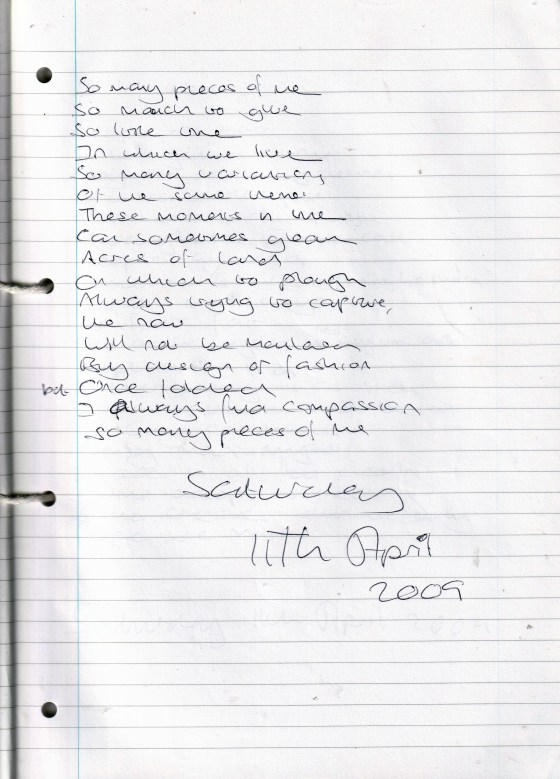 So many pieces of me
So much to give
So little time
In which we live
So many variations
Of the same theme
These moments in time
Can sometimes gleam
Acres of land
On which to plough
Always trying to capture,
the now
Will not be
By design or fashion
but Once folded
I Always find compassion
So many pieces of me
Saturday
11th April
2009